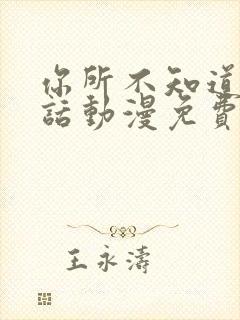 你所不知道
話動漫免費
王永濤